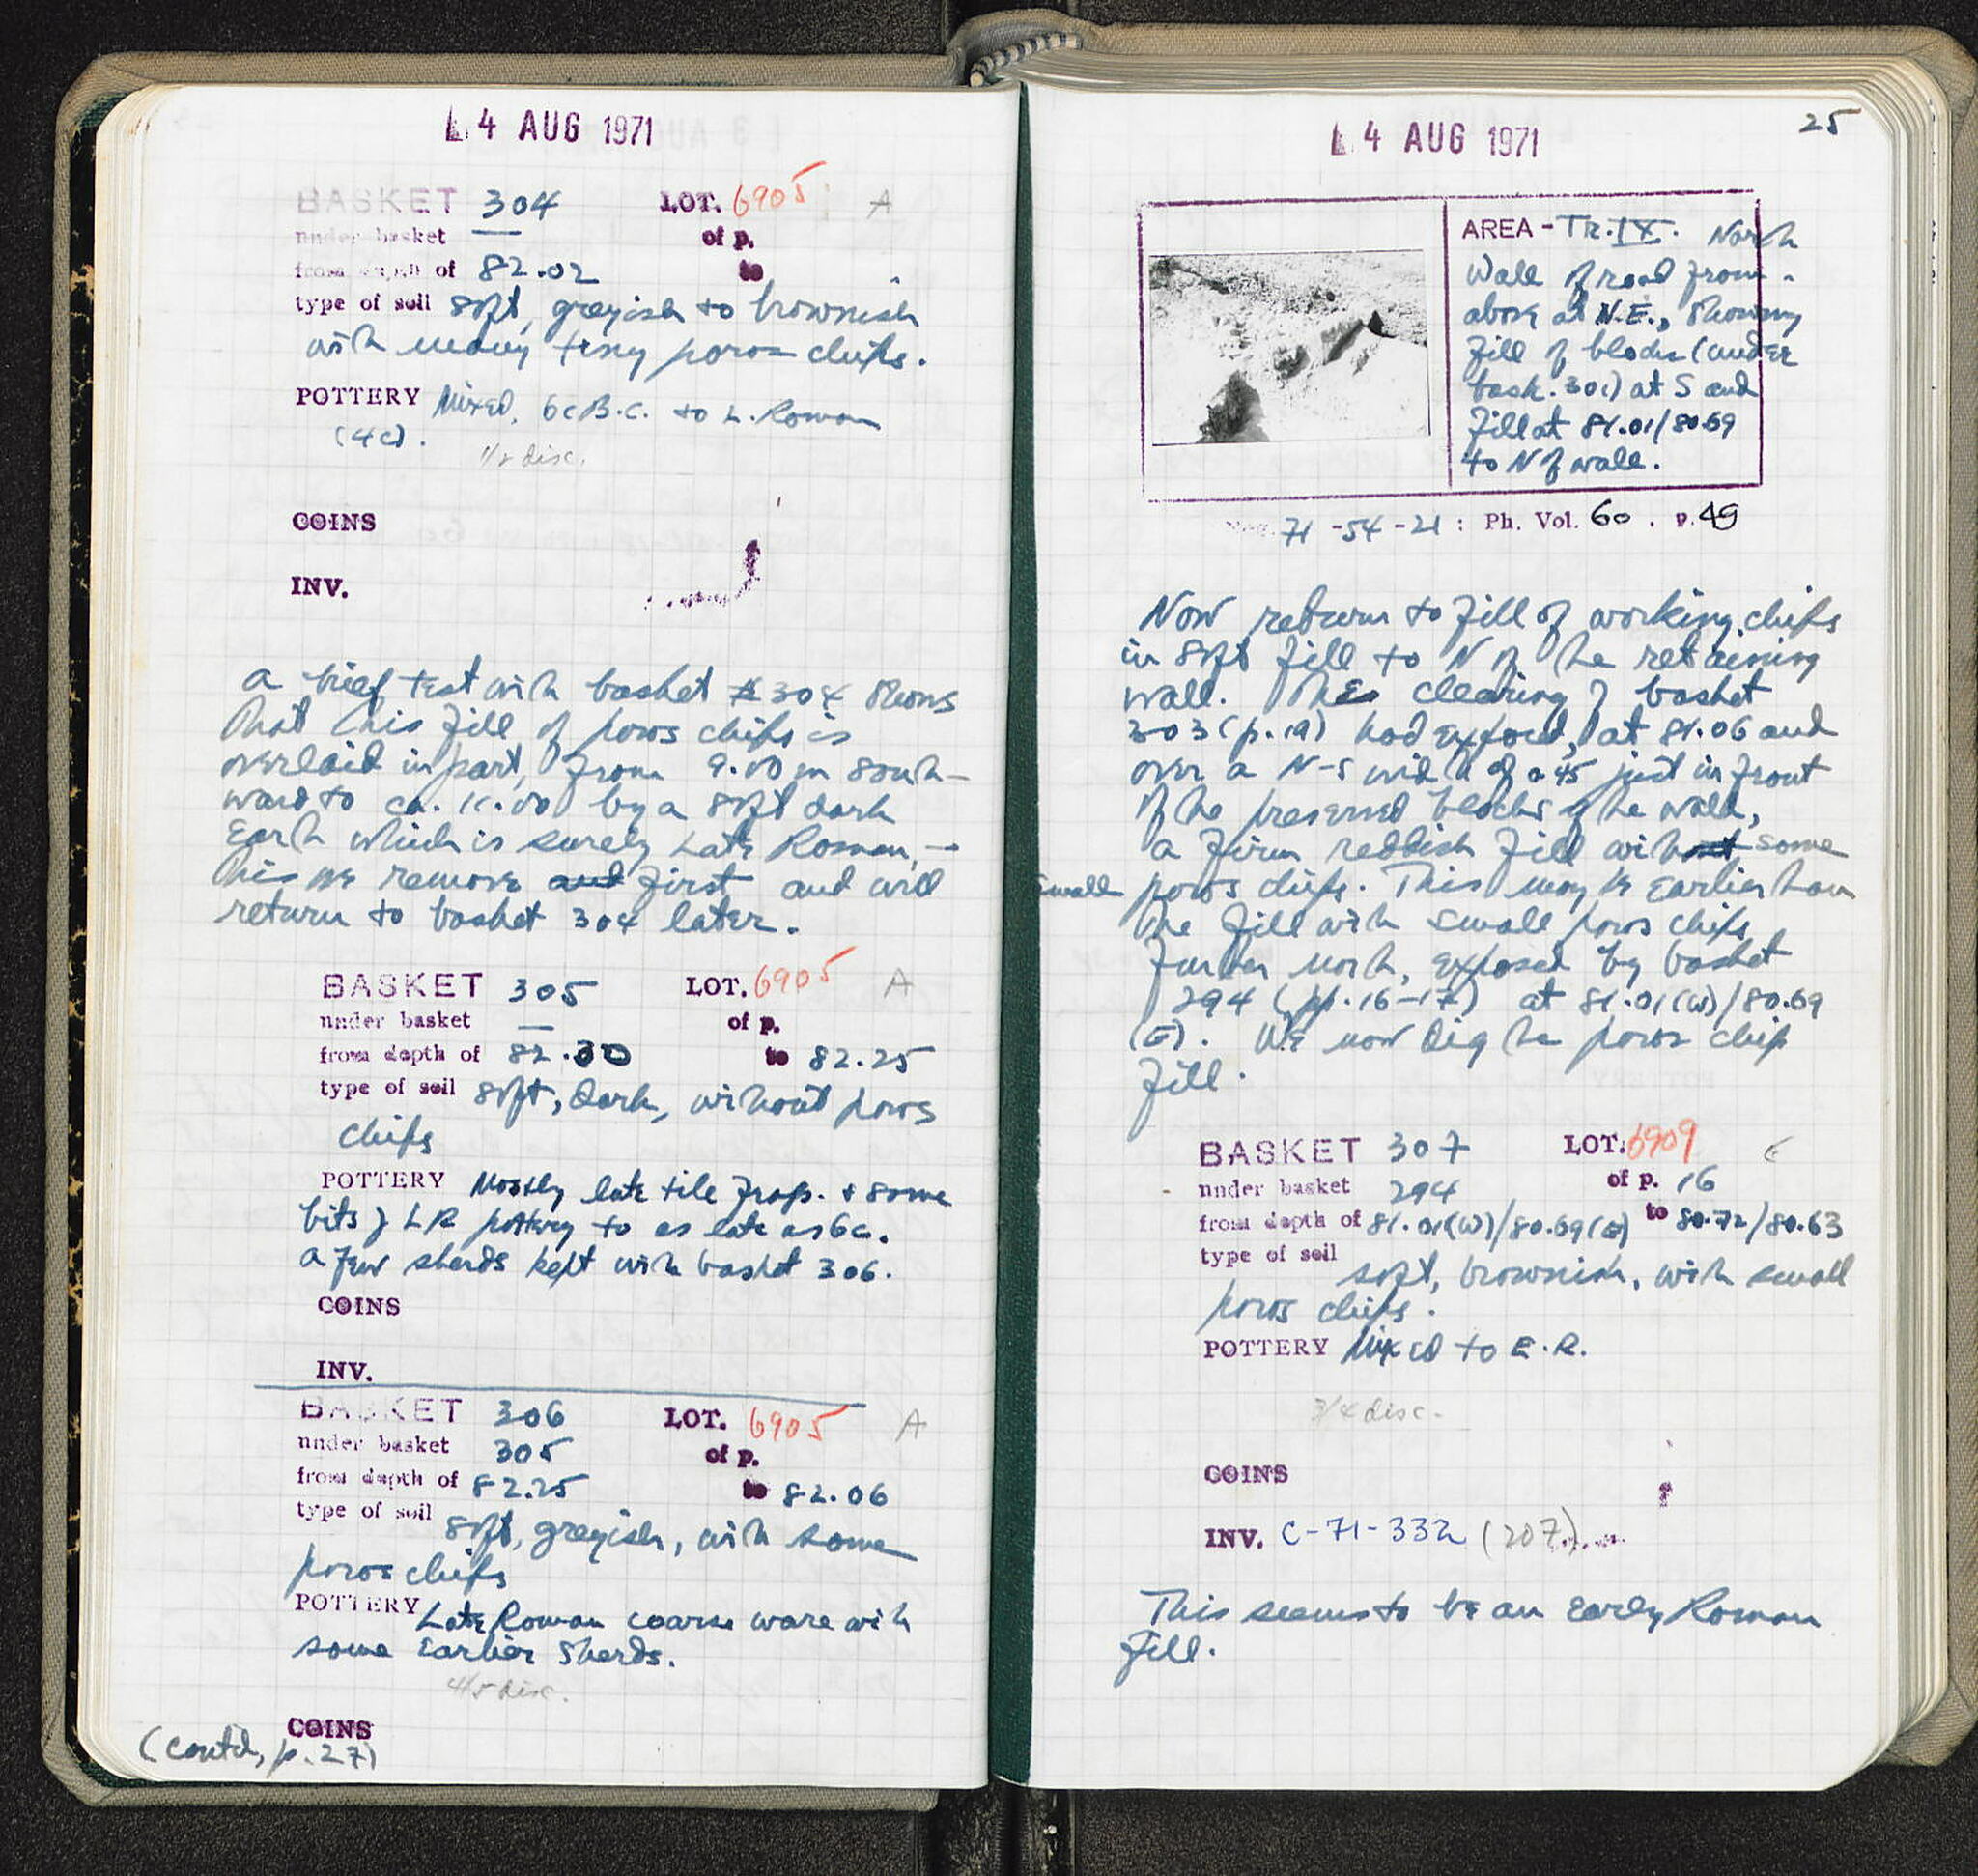 4 AUG 1971
BASKET 304 LOT. 6905 A
under basket — of p.
from depth of 82.02 to
type of soil soft, greyish to brownish
with many tiny poros chips.
POTTERY Mixed, 6c B.C. to L. Roman
(4c).
1/2 disc.
COINS
INV.
A brief test with basket #304 shows
that this fill of poros chips is
overlaid in part, from 9.00 m south-
ward to ca. 11.00 by a soft dark
earth which is surely Late Roman, —
this we remove and first and will
return to basket 304 later.
BASKET 305 LOT. 6905 A
under basket — of p.
from depth of 82.30 to 82.25
type of soil soft, dark, without poros
chips
POTTERY Mostly late tile frags. + some
bits of LR pottery to as late as 6c.
A few sherds kept with basket 306.
COINS
INV.
BASKET 306 LOT. 6905 A
under basket 305 of p.
from depth of 82.25 to 82.06
type of soil soft, greyish, with some
poros chips
POTTERY Late Roman coarse ware with
some Earlier sherds.
4/5 disc.
COINS
(contd, p. 27)
25
4 AUG 1971
AREA - Tr. IX. North
Wall of road from
above at N.E., showing
fill of blocks (under
bask. 301) at S and
fill at 81.01/80.69
to N of wall.
71-54-21: Ph. Vol. 60. p. 49
Now return to fill of working chips
in soft fill to N of the retaining
wall. The clearing of basket
303 (p. 19) had exposed, at 81.06 and
over a N-S width of 0.45 just in front
of the preserved blocks of the wall,
a firm reddish fill without some
small poros chips. This may be earlier than
the fill with small poros chips
further north, exposed by basket
294 (pp. 16-17) at 81.01(W)/80.69
(E). We now dig the poros chip
fill.
BASKET 307 LOT. 6909
under basket 294 of p. 16
from depth of 81.01(W)/80.69(E) to 80.72/80.63
type of soil
soft, brownish, with small
poros chips.
POTTERY Mixed to E.R.
3/4 disc.
COINS
INV. C-71-332 (207)
This seems to be an Early Roman
fill.